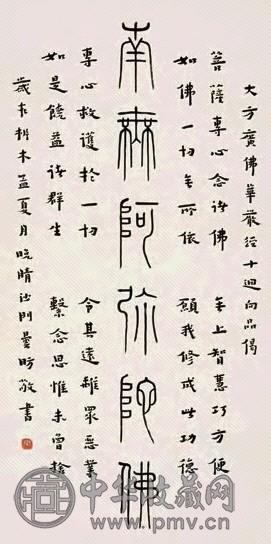 大方廣佛華嚴經十迴向品偈
菩薩專心念諸佛 无上智慧巧方便
如佛一切无所依 願我修成此功德
南無阿弥陀佛
專心救護於一切 令其遠離眾惡業
如是饒益諸群生 繫念思惟未曾捨
歲在析木孟夏月晚晴沙門曇昉敬書
中华收藏网
www.pmv.cn